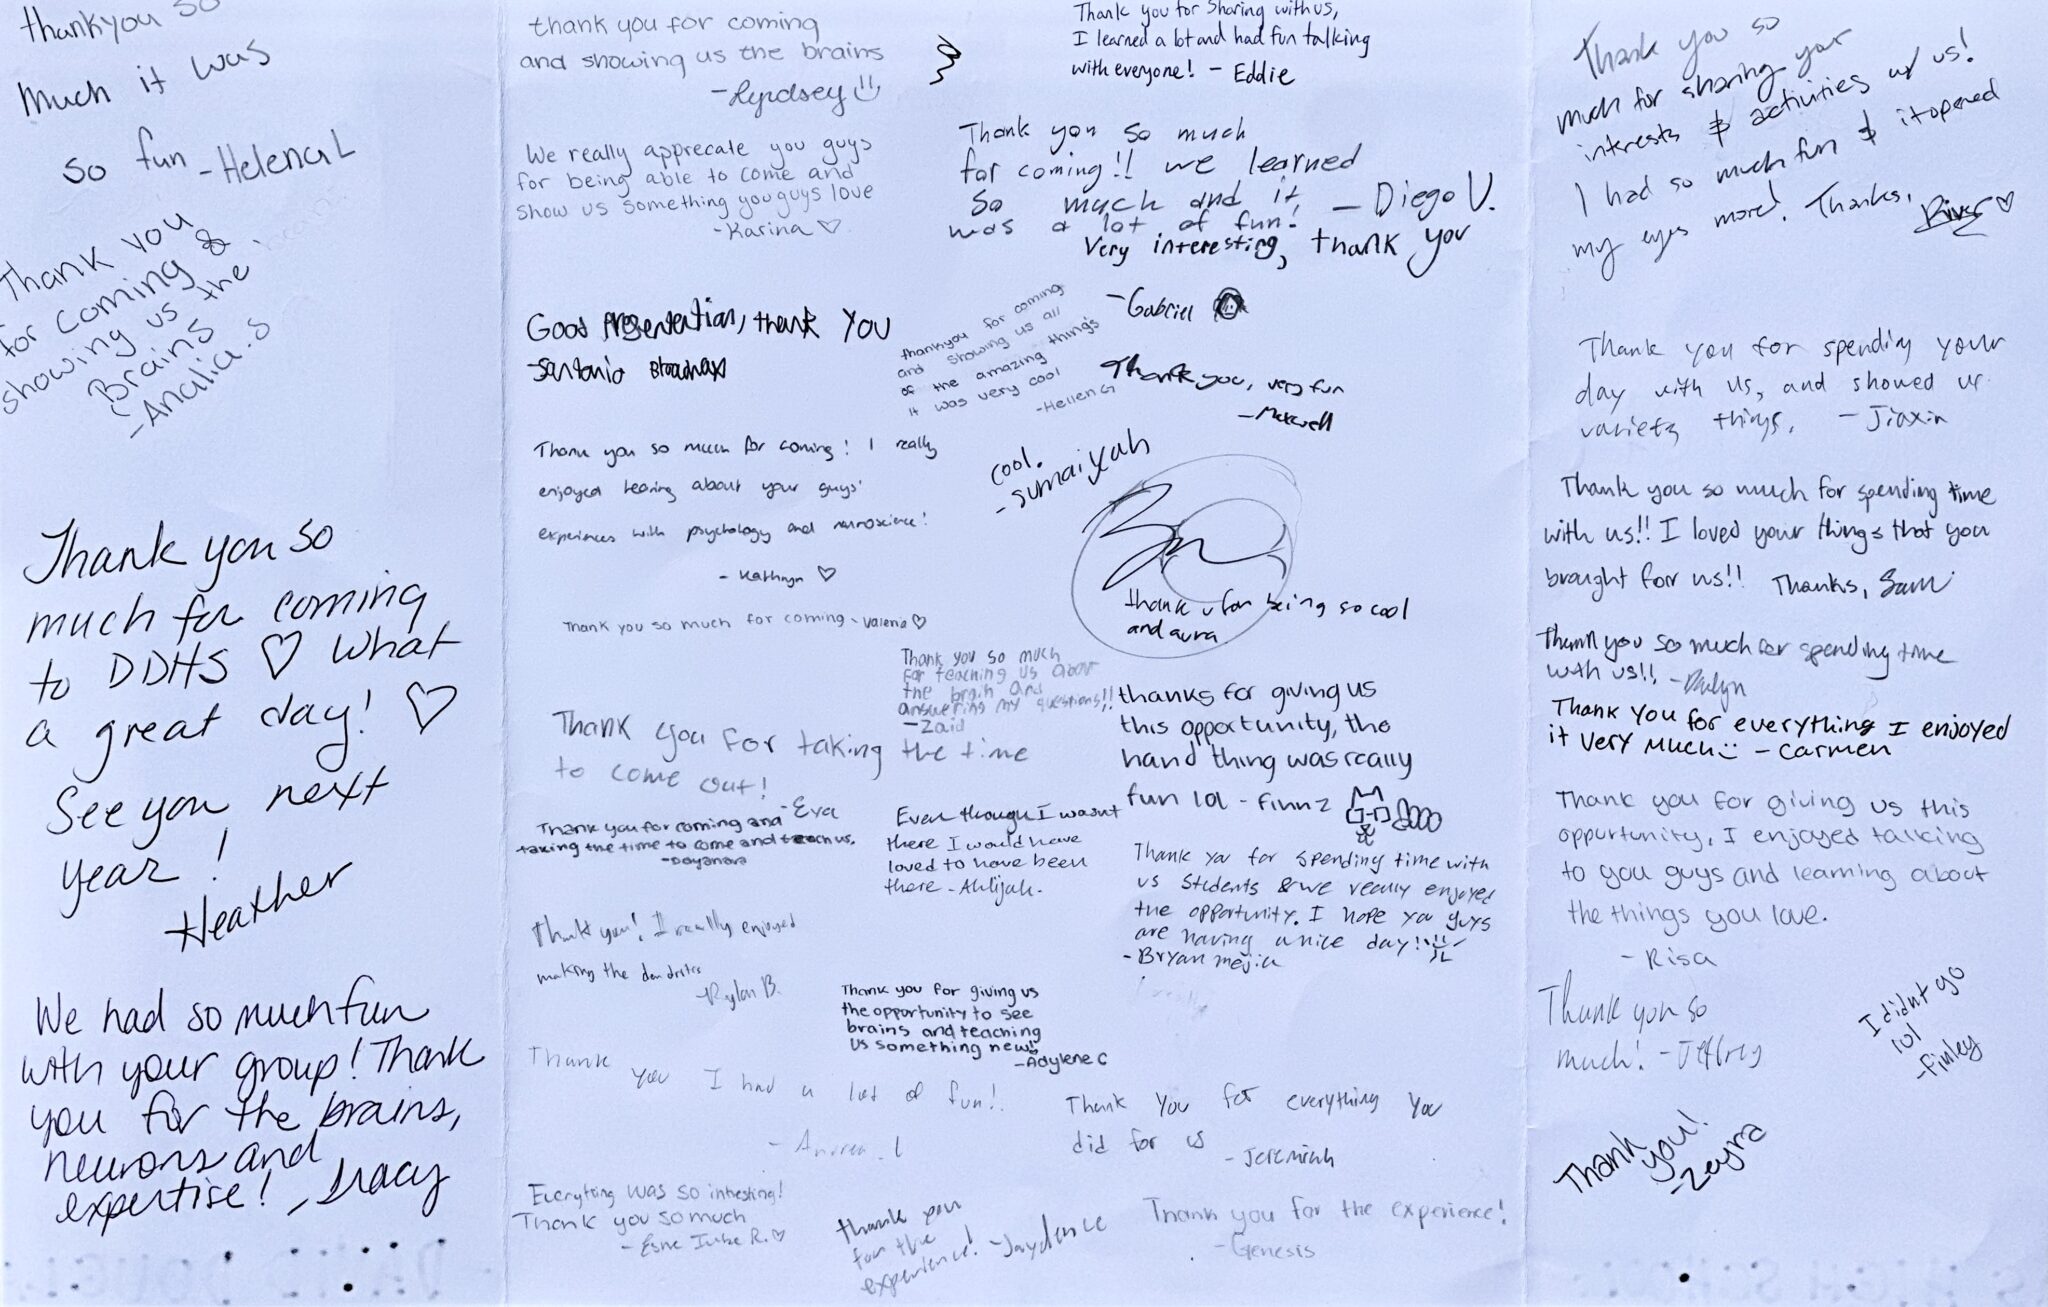 thankyou so
much it was
so fun - Helena L
Thank you
for coming &
showing us the
Brains
- Analia.S
Thank you so
much for coming
to DDHS ♡ What
a great day! ♡
See you next
year!
Heather
We had so much fun
with your group! Thank
you for the brains,
neurons and
expertise! - Tracy
thank you for coming
and showing us the brains
We really apprecate you guys
for being able to come and
show us something you guys love
- Karina ♡
Good Presentation, thank you
- Santonio Broadnax
Thank you so much for coming! I really
enjoyed hearing about your guys'
experiences with psychology and neuroscience!
- Kathryn ♡
Thank you so much for coming - Valeria ♡
Thank you for taking the time
to come out!
- Eva
Thank you for coming and
taking the time to come and teach us.
- Dayanara
Thank you! I really enjoyed
making the dendrites
- Rylan B.
Thank
you I had a lot of fun!!
- Andrea. L
Everything was so intresting!
Thank you so much
Thank you for sharing with us,
I learned a lot and had fun talking
with everyone! - Eddie
Thank you so much
for coming!! we learned
so much and it
was a lot of fun!
- Diego V.
Very interesting, thank you
- Gabriel
thankyou for coming
and showing us all
of the amazing thing's
it was very cool
- Hellen G
Thank you, very fun
- Maxwell
cool.
- sumaiyah
thank u for being so cool
and aura
Thank you so much
for teaching us about
the brain and
answering my questions!!
- Zaid
thanks for giving us
this opportunity, the
hand thing was really
fun lol - finn z
Even though I wasnt
there I would have
loved to have been
there - Ahlijah.
Thank you for spending time with
us students & we really enjoyed
the opportunity. I hope you guys
are having a nice day!
- Bryan mejia
Thank you for giving us
the opportunity to see
brains and teaching
us something new!!
- Adylene C
Thank you for everything you
did for us
- Jeremiah
thank you
for the
experience! - Jaydence
Thank you for the experience!
- Genesis
Thank you so
much for sharing your
interests & activities w/ us!
I had so much fun & it opened
my eyes more! Thanks, River ♡
Thank you for spending your
day with us, and showed us
variety things. - Jiaxin
Thank you so much for spending time
with us!! I loved your things that you
brought for us!! Thanks, Sam
Thank you so much for spending time
with us!!
Thank you for everything I enjoyed
it very much - Carmen
Thank you for giving us this
oppurtunity, I enjoyed talking
to you guys and learning about
the things you love.
- Risa
Thank you so
much! - Jeffrey
I didnt go
lol
- Finley
Thank
you!
- Zeyra